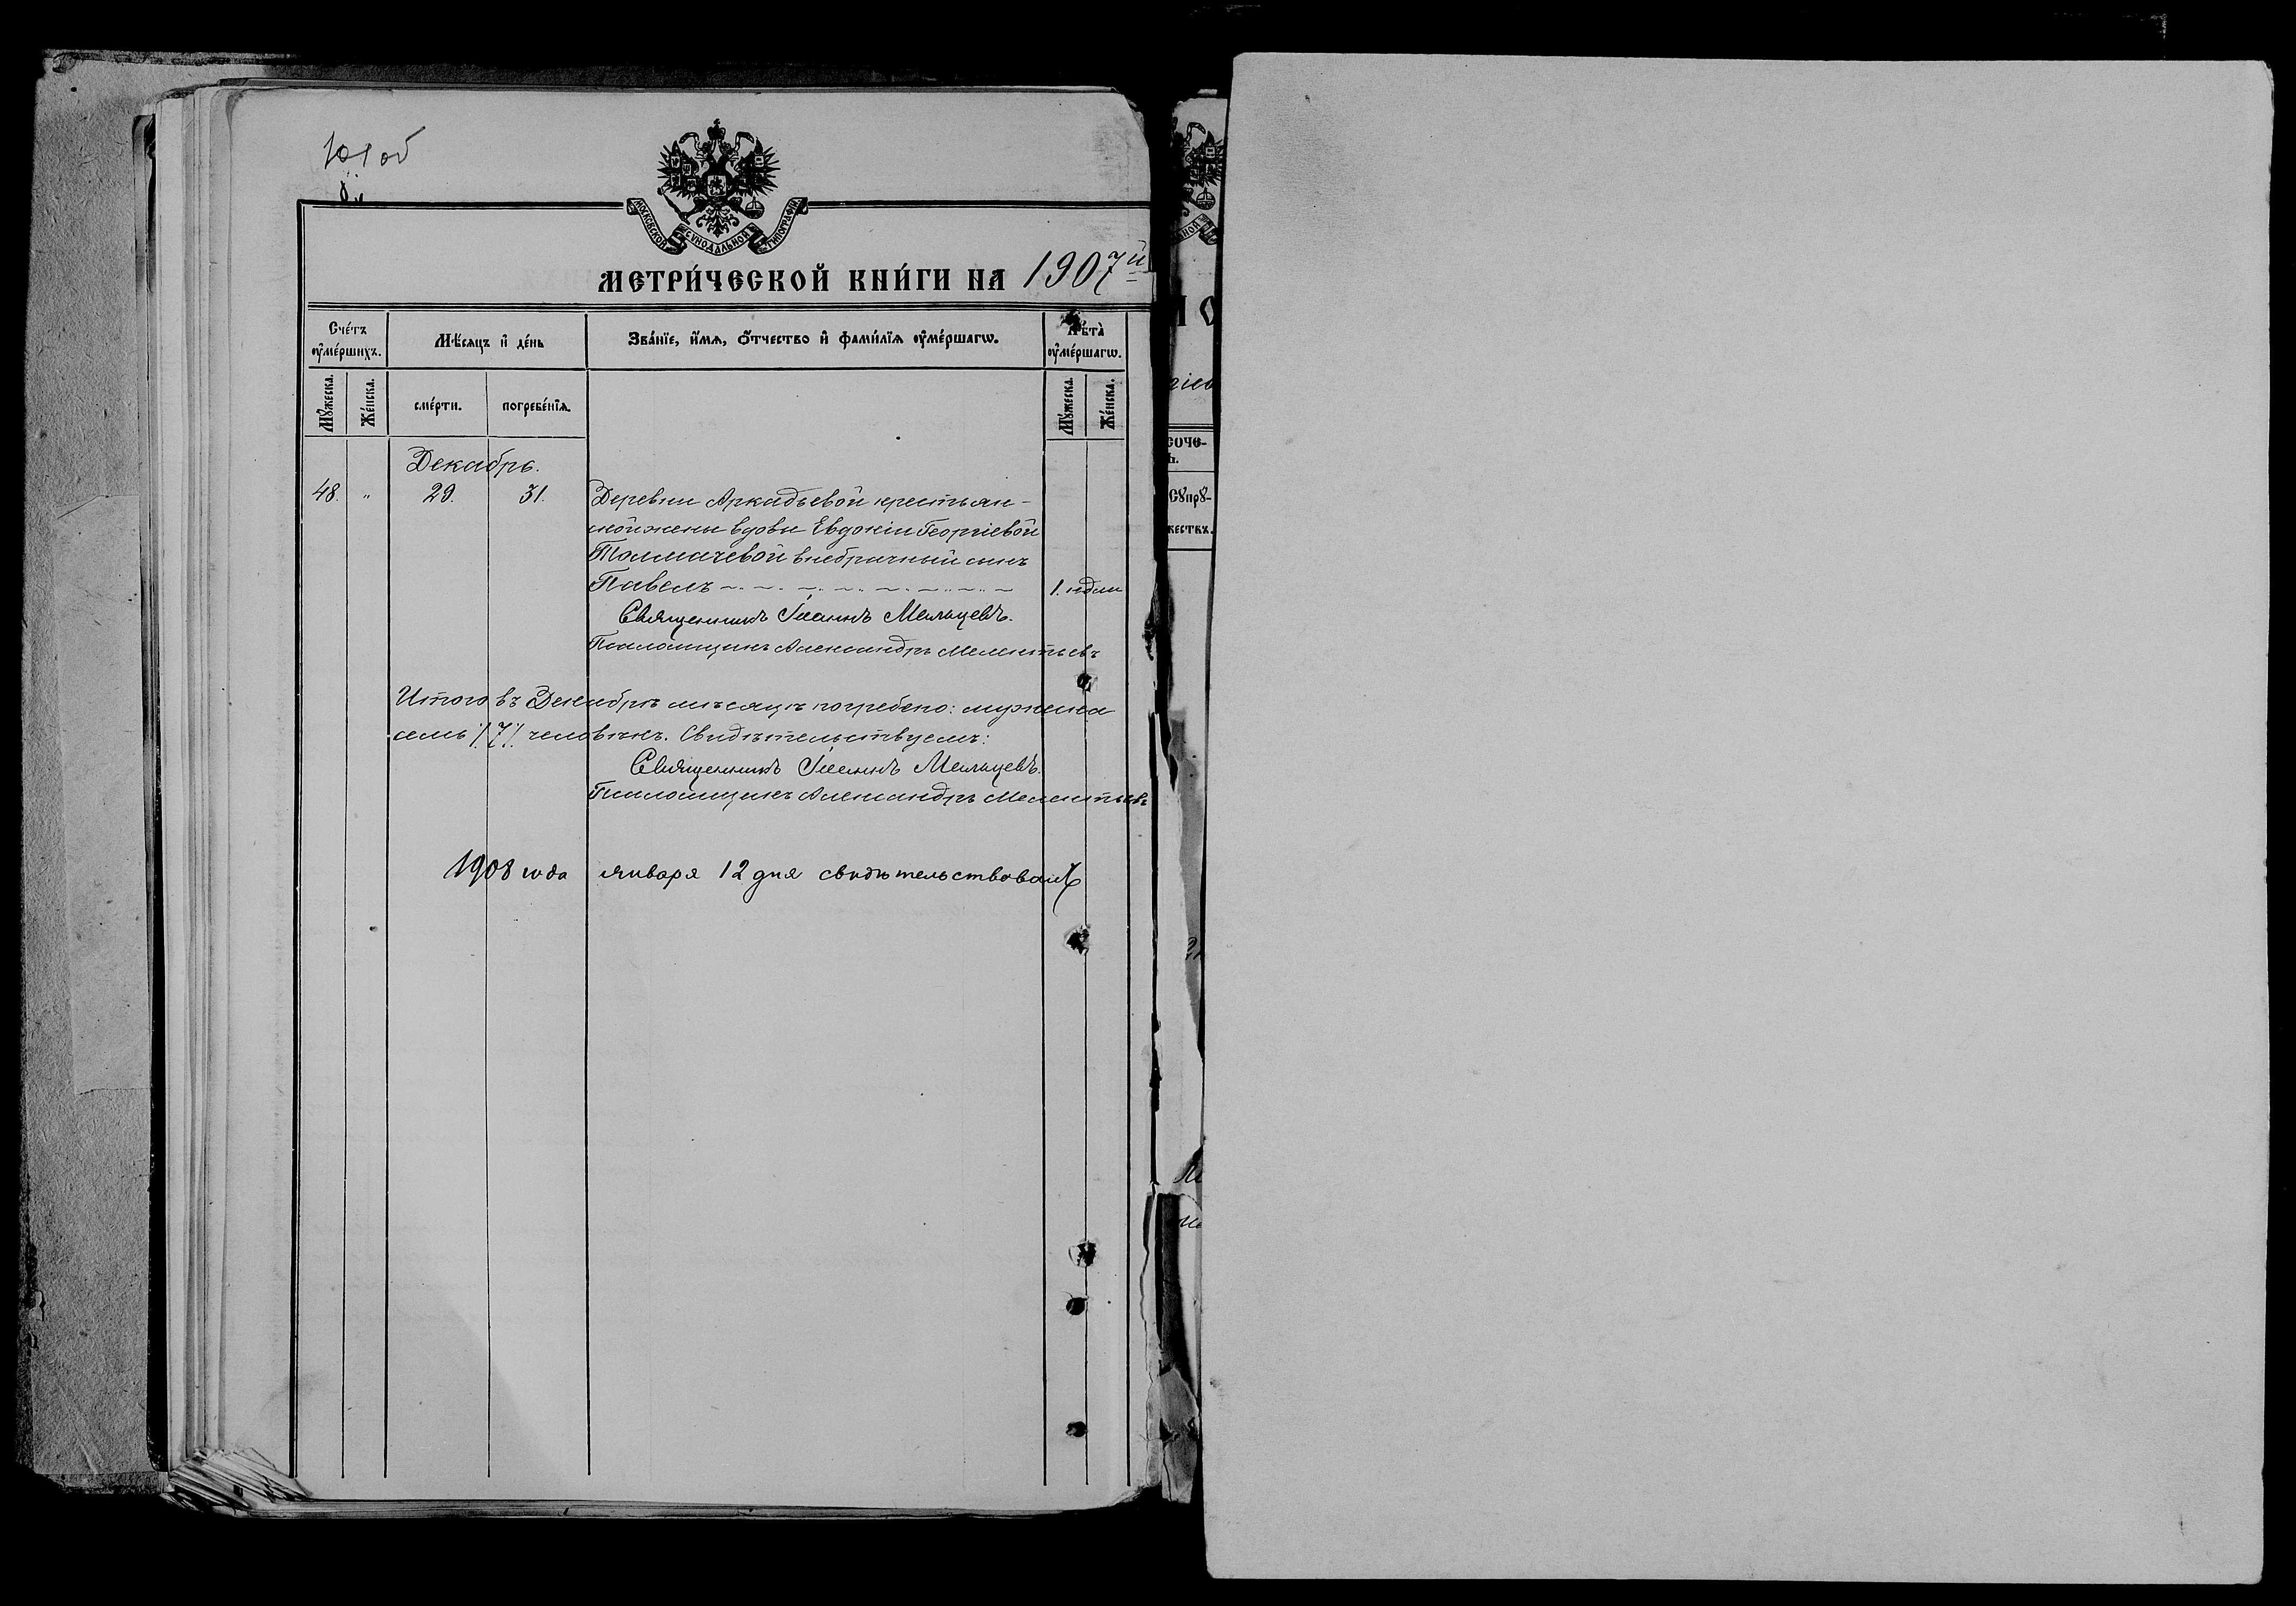 101 об
МОСКОВСКОЙ СУНОДАЛЬНОЙ ТИПОГРАФІИ
МЕТРИ́ЧЕСКОЙ КНИ́ГИ НА 1907й
Сче́тъ ᲂу҆ме́ршихъ.
Мѣ́сѧцъ и҆ де́нь
Зва́нїе, и҆́мѧ, ѻ҆́тчество и҆ фами́лїѧ ᲂу҆ме́ршагѡ.
Лѣ́та ᲂу҆ме́ршагѡ.
Мꙋ́жеска.
Же́нска.
сме́рти.
погребе́нїѧ.
Мꙋ́жеска.
Же́нска.
Декабрь.
48. " 29. 31. Деревни Аркадьевой крестьян-
ской жены вдовы Евдокіи Георгіевой
Толмачевой внебрачный сынъ
Павелъ 1. нѣдѣли
Священникъ Іоаннъ Мальцевъ.
Псаломщикъ Александръ Мелентьевъ
Итого въ Декабрѣ мѣсяцѣ погребено: мужеска
семь /7/. человѣкъ. Свидѣтельствуемъ:
Священникъ Іоаннъ Мальцевъ.
Псаломщикъ Александръ Мелентьевъ
1908 года января 12 дня свидѣтельствовалъ